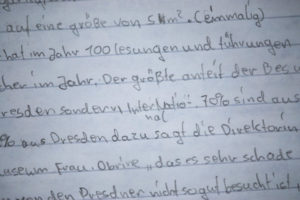 auf eine größe von 5 km². (einmalig)
hat im Jahr 100 lesungen und führungen
cher im Jahr. Der größte anteil der Besu
resden sondern internatio- 70% sind aus
nal
% aus Dresden dazu sagt die Direktorin
useum Frau. „das es sehr schade
den Dresdner nicht so gut besucht ist